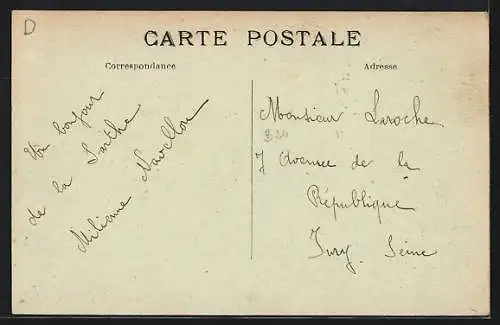 D
CARTE POSTALE
Correspondance
Adresse
Un bonjour
de la Sarthe
Miliane Navellou
Monsieur Laroche
7 Avenue de la
République
Ivry. Seine